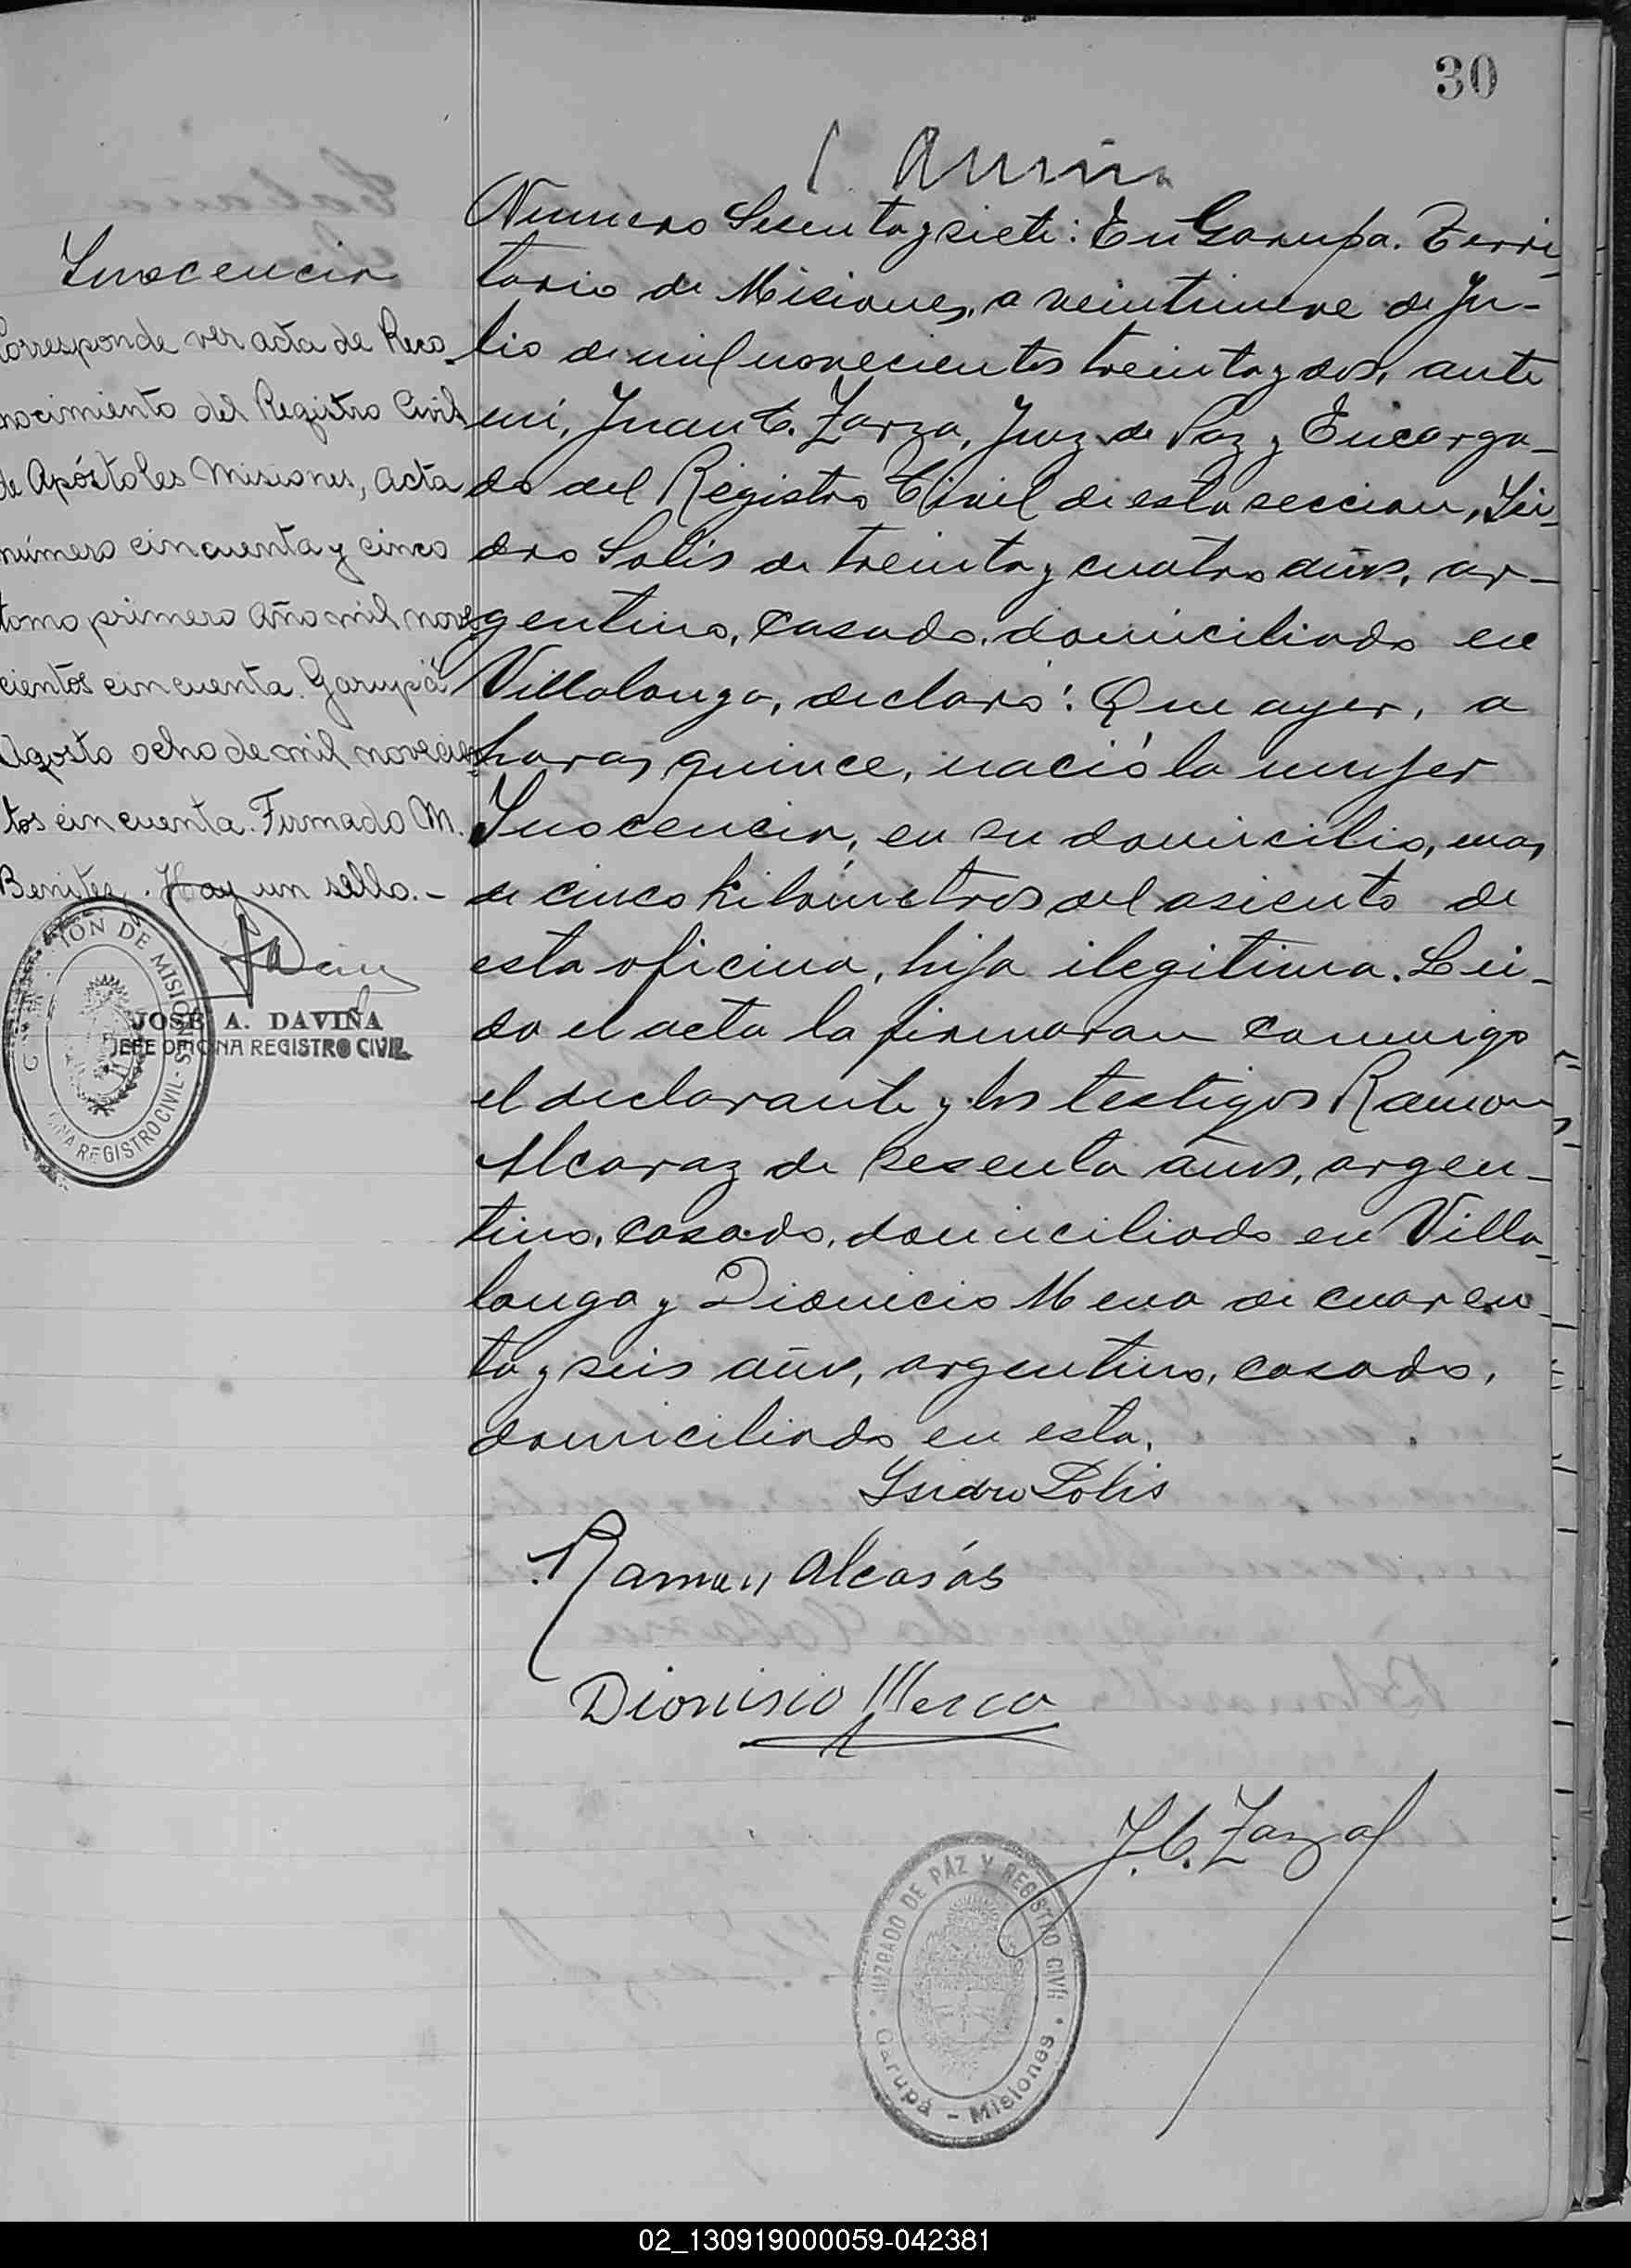 30
Inocencia
Corresponde ver acta de Reco
nocimiento del Registro Civil
de Apóstoles Misiones, acta
número cincuenta y cinco
tomo primero Año mil nove
cientos cincuenta. Garupá
Agosto ocho de mil novecien
tos cincuenta. Firmado M.
Benitez. Hay un sello.-
JOSÉ A. DAVIÑA
JEFE OFICINA REGISTRO CIVIL
CION DE MISIONES
INA REGISTRO CIVIL
Numero Sesenta y siete: En Garupa. Terri-
torio de Misiones, a veintinueve de Ju-
lio de mil novecientos treinta y dos, ante
mi, Juan C. Zarza, Juez de Paz y Encarga-
do del Registro Civil de esta seccion, Isi-
dro Solis de treinta y cuatro años, ar-
gentino, casado, domiciliado en
Villalonga, declaró: Que ayer, a
horas quince, nació la mujer
Inocencia, en su domicilio, mas
de cinco kilómetros del asiento de
esta oficina, hija ilegitima. Lei-
do el acta la firmaran conmigo
el declarante y los testigos Ramon
Alcaraz de sesenta años, argen-
tino, casado, domiciliado en Villa-
longa y Dionicio Mena de cuaren-
ta y seis años, argentino, casado,
domiciliado en esta.
Isidro Solis
Ramon Alcarás
Dionisio Mena
J. C. Zarza
JUZGADO DE PAZ Y REGISTRO CIVIL
Garupá - Misiones
02_130919000059-042381